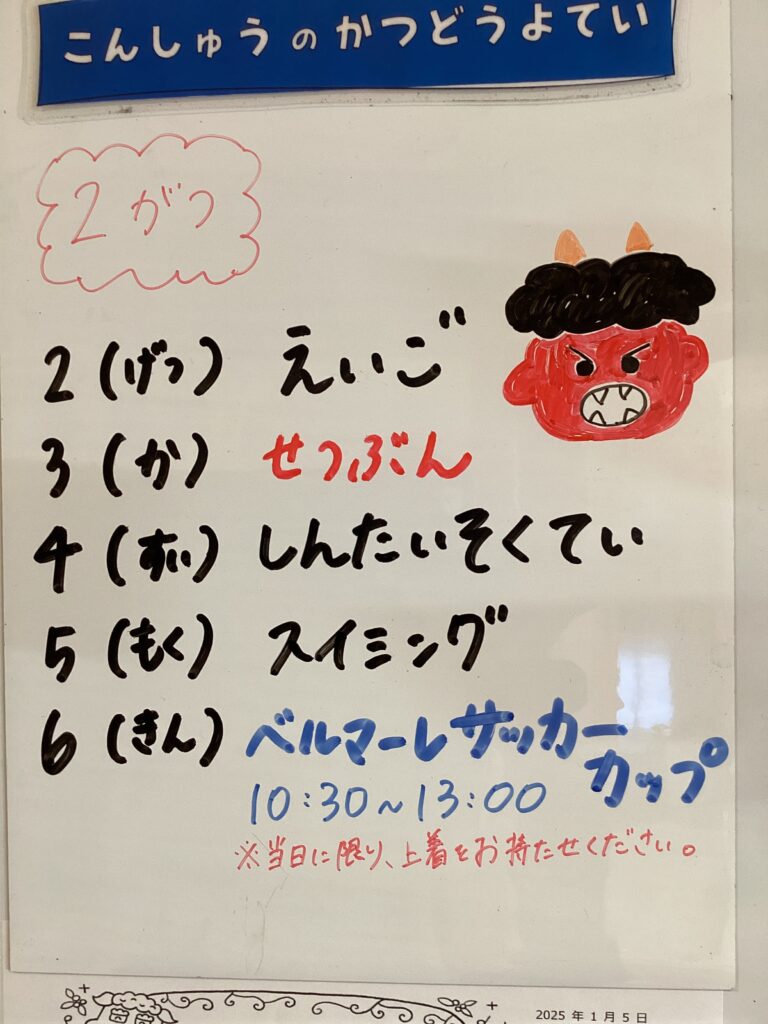 こんしゅうのかつどうよてい
2がつ
2(げつ) えいご
3(か) せつぶん
4(すい) しんたいそくてい
5(もく) スイミング
6(きん) ベルマーレサッカー
カップ
10:30~13:00
※当日に限り、上着をお持たせください。
2025 年 1 月 5 日